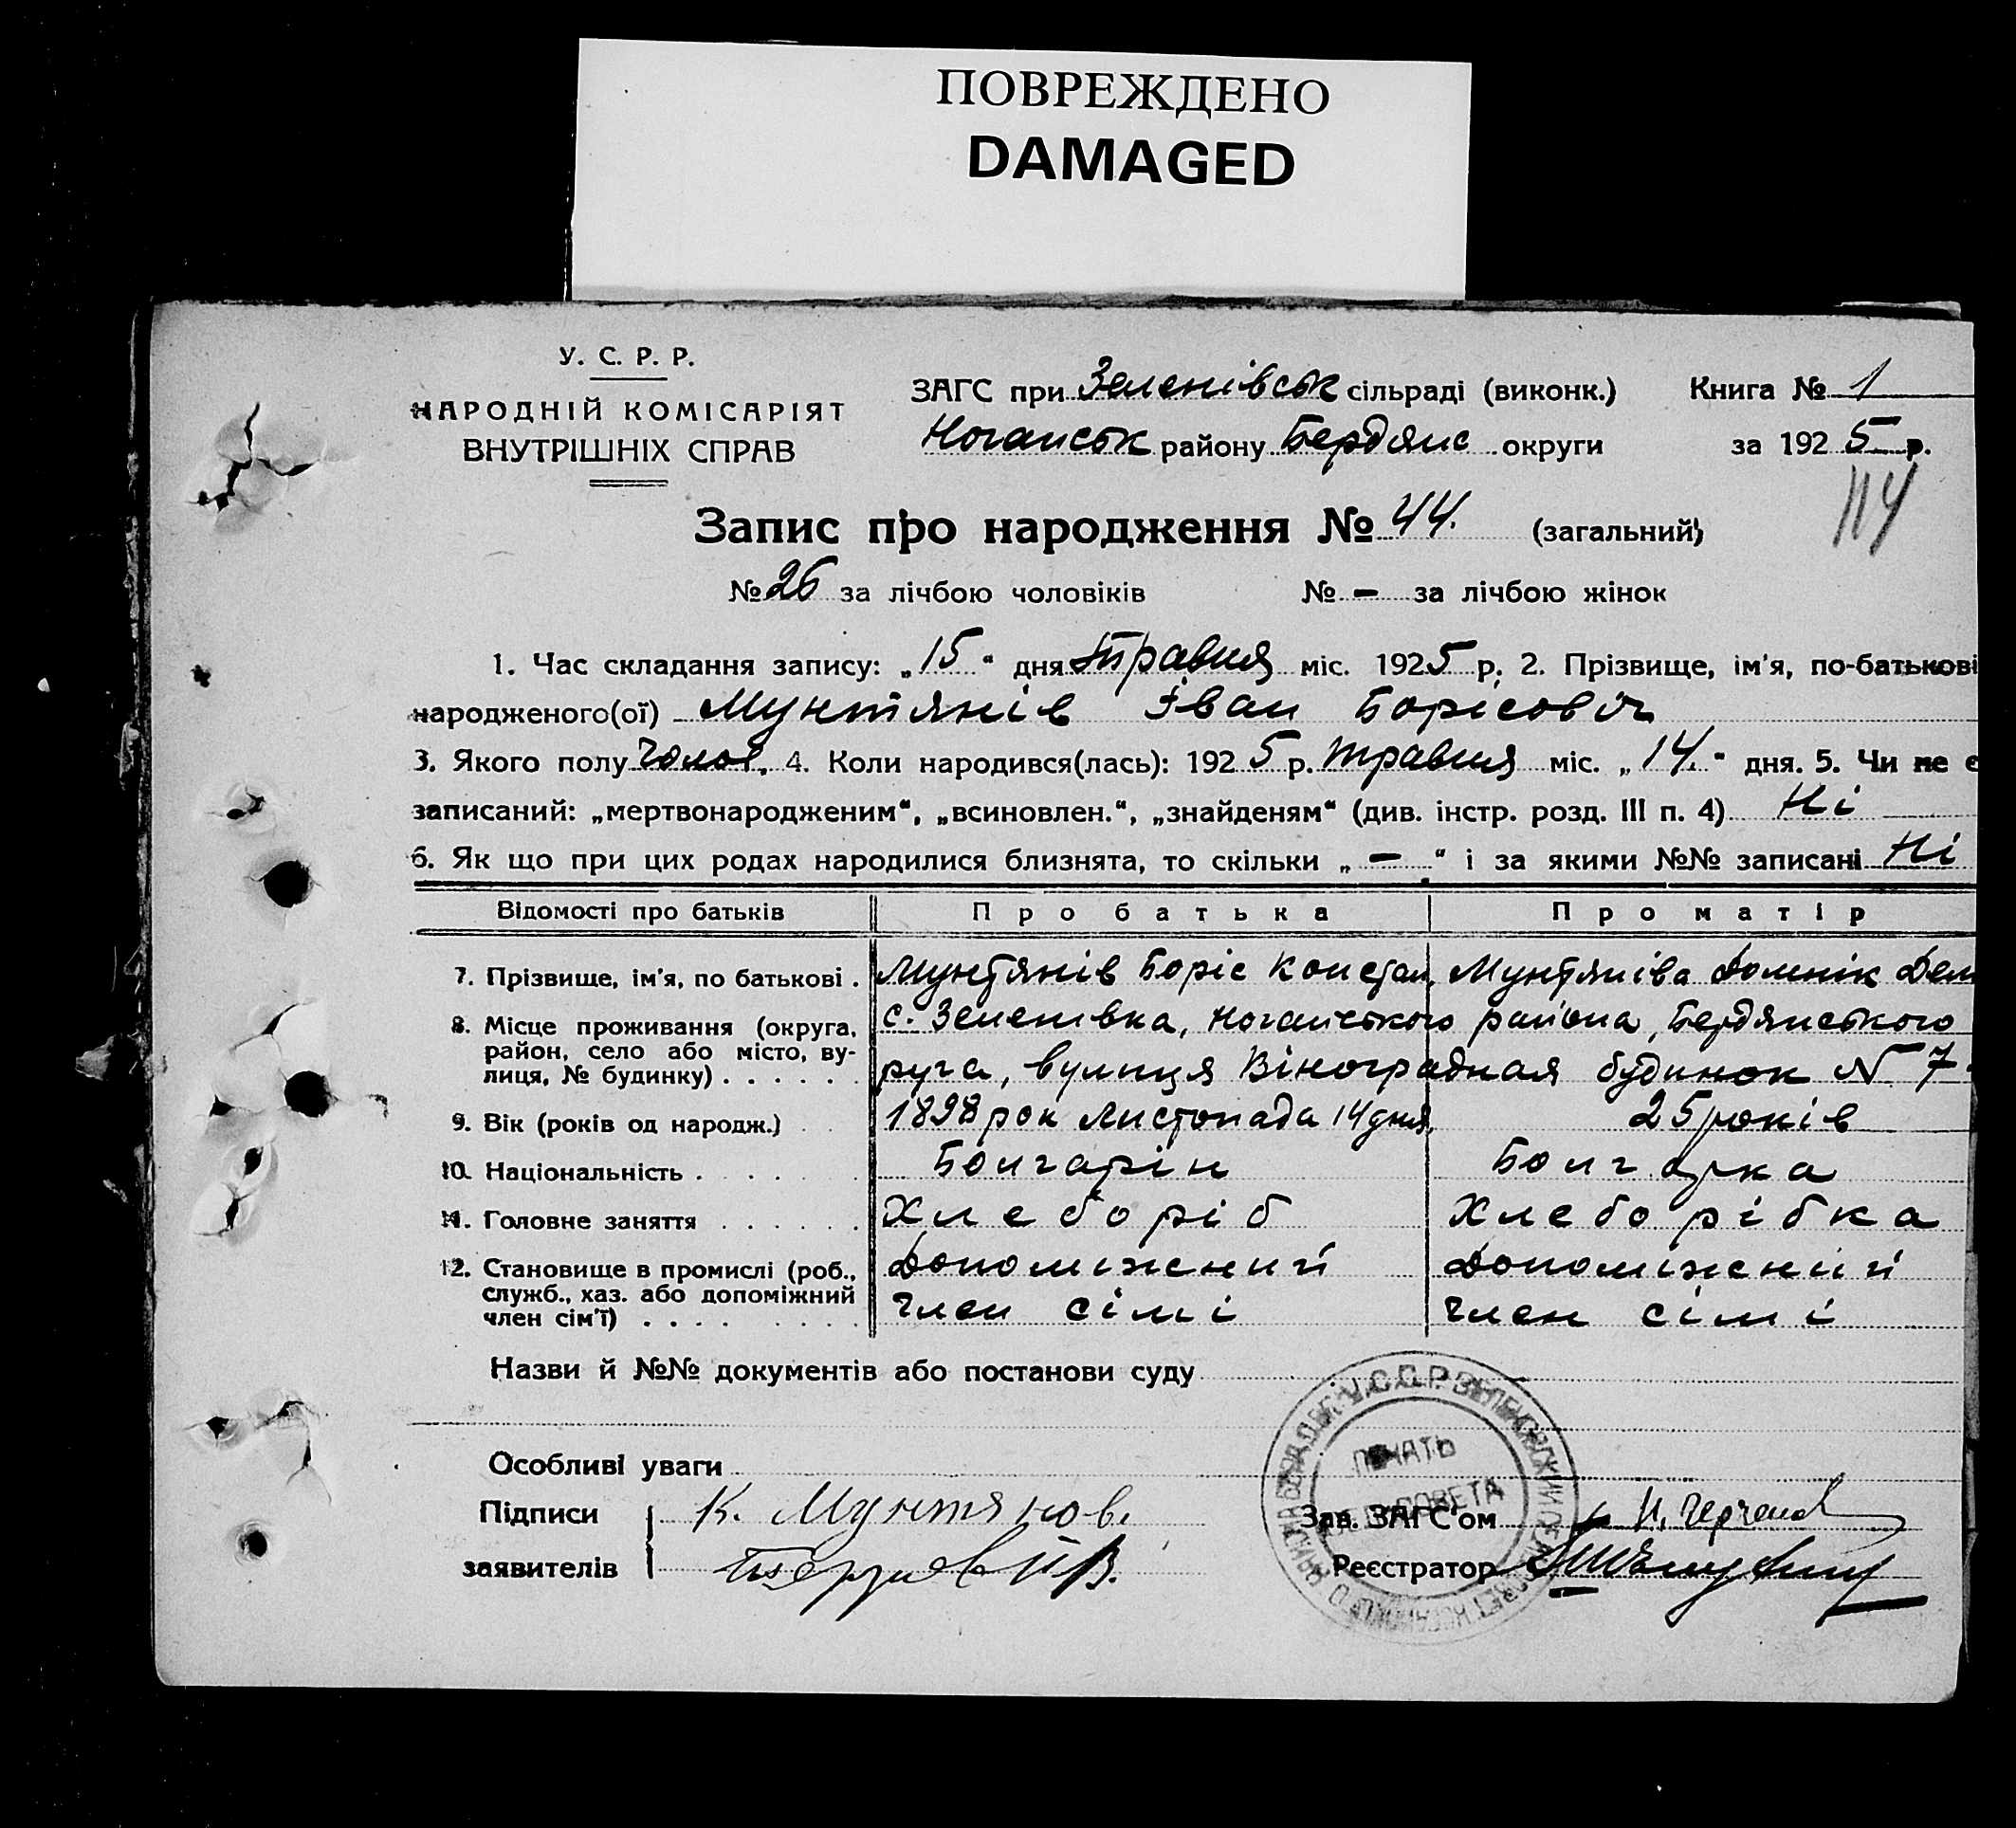 ПОВРЕЖДЕНО
DAMAGED
У. С. Р. Р.
НАРОДНІЙ КОМІСАРІЯТ
ВНУТРІШНІХ СПРАВ
ЗАГС при Зеленівськ сільраді (виконк.) Книга № 1
Ногайськ району Бердянс округи за 1925 р.
114
Запис про народження № 44. (загальний)
№ 26 за лічбою чоловіків № – за лічбою жінок
1. Час складання запису: „15“ дня Травня міс. 1925 р. 2. Прізвище, ім'я, по-батькові
народженого(ої) Мунтянів Іван Борісовіч
3. Якого полу Чолов. 4. Коли народився(лась): 1925 р. травня міс. „14.“ дня. 5. Чи не є
записаний: „мертвонародженим“, „всиновлен.“, „знайденям“ (див. інстр. розд. III п. 4) Ні
6. Як що при цих родах народилися близнята, то скільки „ – “ і за якими №№ записані Ні
Відомості про батьків Про батька Про матір
7. Прізвище, ім'я, по батькові . Мунтянів Боріс Констан. Мунтяніва Домнік Дем
8. Місце проживання (округа, район, село або місто, ву-лиця, № будинку) . . . . . . с. Зеленівка, Ногайського района, Бердянського
руга, вулиця Віноградная будинок № 7.
9. Вік (років од народж.) . . 1898 рок Листопада 14 дня. 25 років
10. Національність . . . . . Болгарін Болгарка
11. Головне заняття . . . . . . Хлеборіб Хлеборібка
12. Становище в промислі (роб., служб., хаз. або допоміжний член сім'ї) . . . . . . . . Допоміжений Допоміжений
член сімі член сімі
Назви й №№ документів або постанови суду
Особливі уваги
Підписи К. Мунтянов. Зав. ЗАГС'ом
заявителів Реєстратор
ПЕЧАТЬ